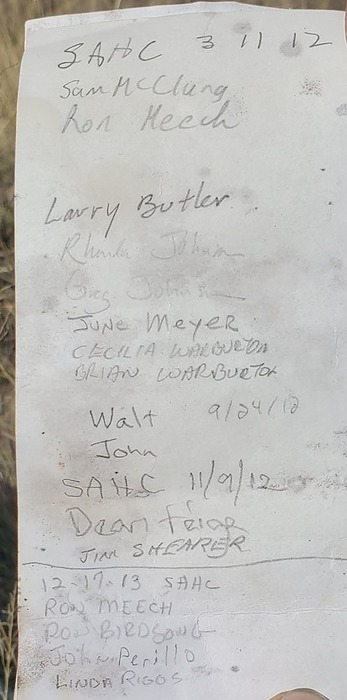 SAHC 3 11 12
Sam McClung
Ron Meech
Larry Butler
Rhonda Johnson
Greg Johnson
JUNE Meyer
CECILIA WARBURTON
BRIAN WARBURTON
Walt 9/24/12
John
SAHC 11/9/12
Dean
JIM SHEARER
12-17-13 SAHC
RON MEECH
RON BIRDSONG
John Perillo
LINDA RIGGS